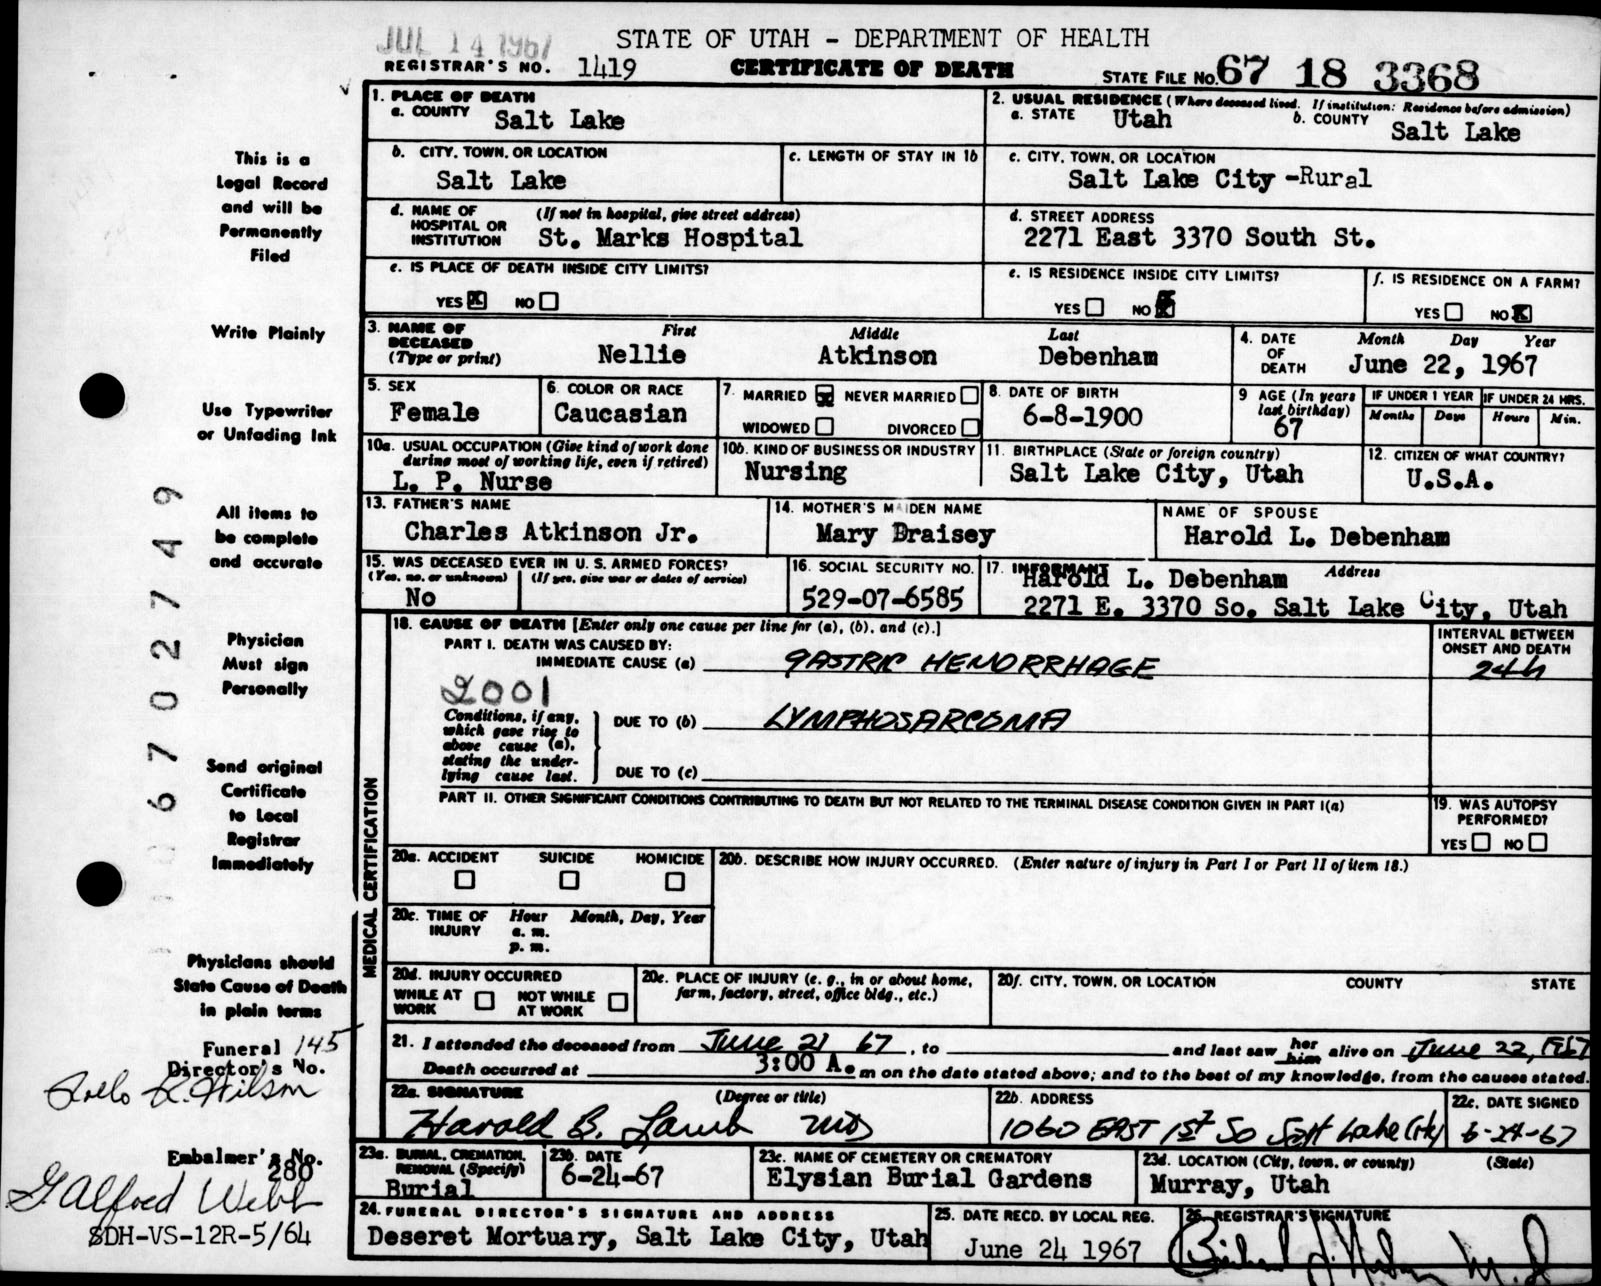 JUL 14 1967
STATE OF UTAH - DEPARTMENT OF HEALTH
REGISTRAR'S NO. 1419 CERTIFICATE OF DEATH STATE FILE NO. 67 18 3368
1. PLACE OF DEATH
a. COUNTY Salt Lake
2. USUAL RESIDENCE (Where deceased lived. If institution: Residence before admission)
a. STATE Utah b. COUNTY Salt Lake
b. CITY, TOWN, OR LOCATION
Salt Lake
c. LENGTH OF STAY IN 1b
c. CITY, TOWN, OR LOCATION
Salt Lake City -Rural
d. NAME OF HOSPITAL OR INSTITUTION (If not in hospital, give street address)
St. Marks Hospital
d. STREET ADDRESS
2271 East 3370 South St.
e. IS PLACE OF DEATH INSIDE CITY LIMITS?
YES X NO
e. IS RESIDENCE INSIDE CITY LIMITS?
YES NO X
f. IS RESIDENCE ON A FARM?
YES NO X
3. NAME OF DECEASED (Type or print)
First Middle Last
Nellie Atkinson Debenham
4. DATE OF DEATH Month Day Year
June 22, 1967
5. SEX
Female
6. COLOR OR RACE
Caucasian
7. MARRIED X NEVER MARRIED
WIDOWED DIVORCED
8. DATE OF BIRTH
6-8-1900
9 AGE (In years last birthday)
67
IF UNDER 1 YEAR IF UNDER 24 HRS.
Months Days Hours Min.
10a. USUAL OCCUPATION (Give kind of work done during most of working life, even if retired)
L. P. Nurse
10b. KIND OF BUSINESS OR INDUSTRY
Nursing
11. BIRTHPLACE (State or foreign country)
Salt Lake City, Utah
12. CITIZEN OF WHAT COUNTRY?
U.S.A.
13. FATHER'S NAME
Charles Atkinson Jr.
14. MOTHER'S MAIDEN NAME
Mary Braisey
NAME OF SPOUSE
Harold L. Debenham
15. WAS DECEASED EVER IN U. S. ARMED FORCES?
(Yes, no, or unknown) (If yes, give war or dates of service)
No
16. SOCIAL SECURITY NO.
529-07-6585
17. INFORMANT Address
Harold L. Debenham
2271 E. 3370 So. Salt Lake City, Utah
MEDICAL CERTIFICATION
18. CAUSE OF DEATH [Enter only one cause per line for (a), (b), and (c).]
INTERVAL BETWEEN ONSET AND DEATH
PART I. DEATH WAS CAUSED BY:
IMMEDIATE CAUSE (a) GASTRIC HEMORRHAGE 24h
2001
Conditions, if any, which gave rise to above cause (a), stating the underlying cause last.
DUE TO (b) LYMPHOSARCOMA
DUE TO (c)
PART II. OTHER SIGNIFICANT CONDITIONS CONTRIBUTING TO DEATH BUT NOT RELATED TO THE TERMINAL DISEASE CONDITION GIVEN IN PART I(a)
19. WAS AUTOPSY PERFORMED?
YES NO
20a. ACCIDENT SUICIDE HOMICIDE
20b. DESCRIBE HOW INJURY OCCURRED. (Enter nature of injury in Part I or Part II of item 18.)
20c. TIME OF INJURY Hour Month, Day, Year
a. m.
p. m.
20d. INJURY OCCURRED
WHILE AT WORK NOT WHILE AT WORK
20e. PLACE OF INJURY (e. g., in or about home, farm, factory, street, office bldg., etc.)
20f. CITY, TOWN, OR LOCATION COUNTY STATE
21. I attended the deceased from June 21 67, to and last saw her him alive on June 22, 1967
Death occurred at 3:00 A. m on the date stated above; and to the best of my knowledge, from the causes stated.
22a. SIGNATURE (Degree or title)
Harold B. Lamb MD
22b. ADDRESS
1060 EAST 1st So Salt Lake City
22c. DATE SIGNED
6-24-67
23a. BURIAL, CREMATION, REMOVAL (Specify)
Burial
23b. DATE
6-24-67
23c. NAME OF CEMETERY OR CREMATORY
Elysian Burial Gardens
23d. LOCATION (City, town, or county) (State)
Murray, Utah
24. FUNERAL DIRECTOR'S SIGNATURE AND ADDRESS
Deseret Mortuary, Salt Lake City, Utah
25. DATE RECD. BY LOCAL REG.
June 24 1967
26. REGISTRAR'S SIGNATURE
This is a
Legal Record
and will be
Permanently
Filed
Write Plainly
Use Typewriter
or Unfading Ink
All items to
be complete
and accurate
Physician
Must sign
Personally
Send original
Certificate
to Local
Registrar
Immediately
Physicians should
State Cause of Death
in plain terms
Funeral 145
Director's No.
Wilson
Embalmer's No.
280
G Alfred Webb
SDH-VS-12R-5/64
0 6 7 0 2 7 4 9